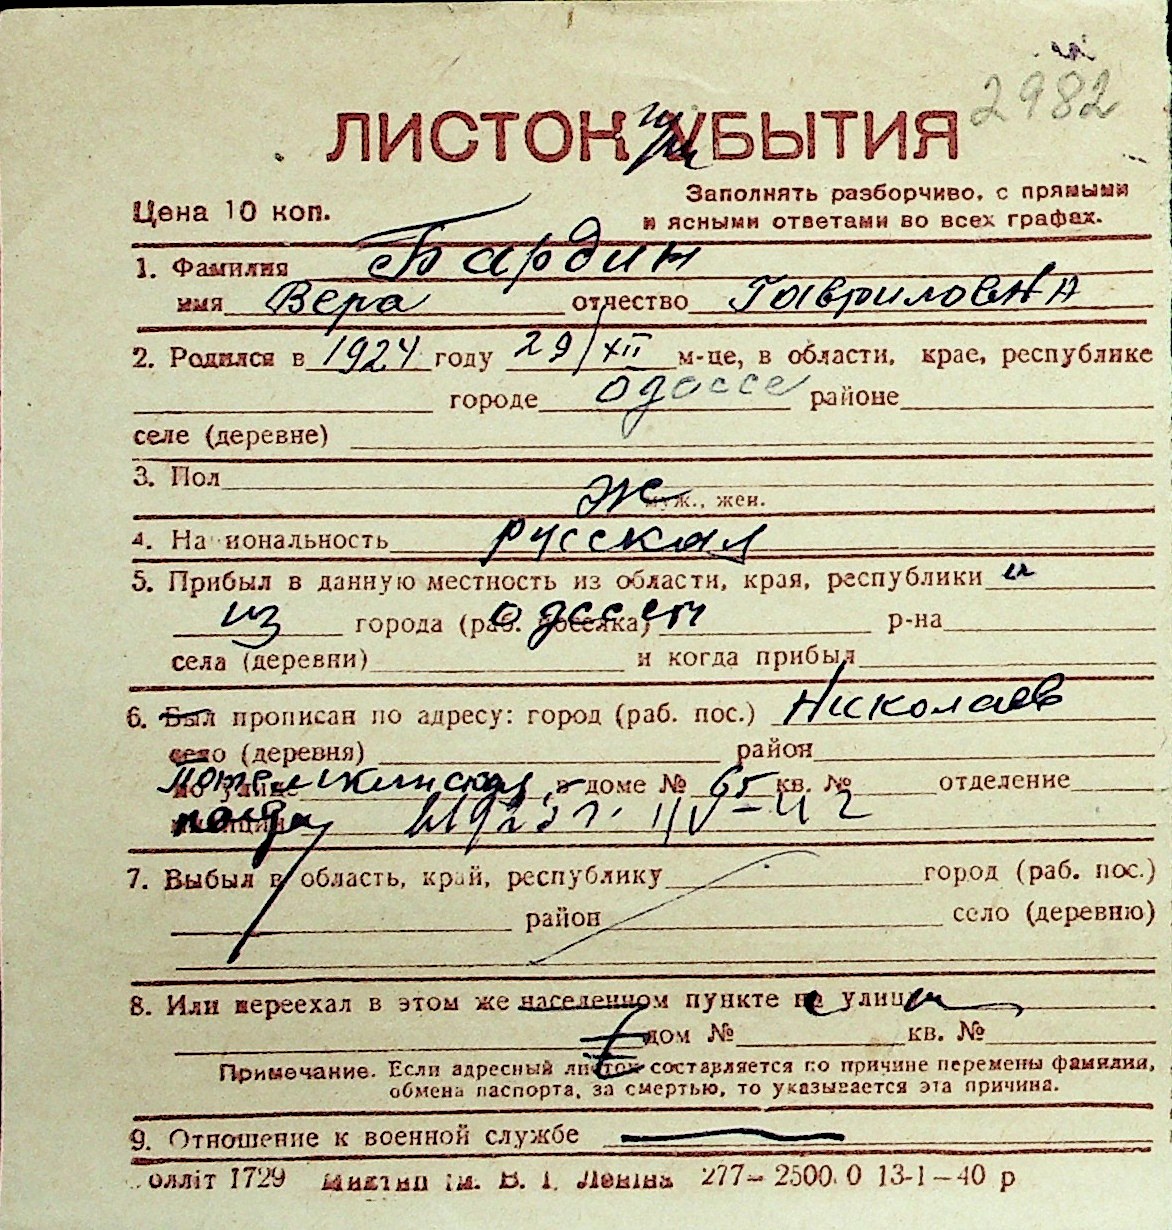 2982
ЛИСТОК при УБЫТИЯ
Заполнять разборчиво, с прямыми
Цена 10 коп.
и ясными ответами во всех графах.
1. Фамилия Бардин
имя Вера отчество Гавриловна
2. Родился в 1924 году 29/XII м-це, в области, крае, республике
городе Одоссе районе
селе (деревне)
3. Пол ж
муж., жен.
4. Национальность русская
5. Прибыл в данную местность из области, края, республики
из города (раб. поселка) Одессы р-на
села (деревни) и когда прибыл
6. Был прописан по адресу: город (раб. пос.) Николаев
село (деревня) район
по улице Потемкинская, в доме № 65 кв. № отделение
милиции
7. Выбыл в область, край, республику город (раб. пос.)
район село (деревню)
8. Или переехал в этом же населенном пункте на улицу
дом № кв. №
Примечание. Если адресный листок составляется по причине перемены фамилии,
обмена паспорта, за смертью, то указывается эта причина.
9. Отношение к военной службе
олліт 1729 ім. В. І. Леніна 277– 2500.0 13-1–40 р